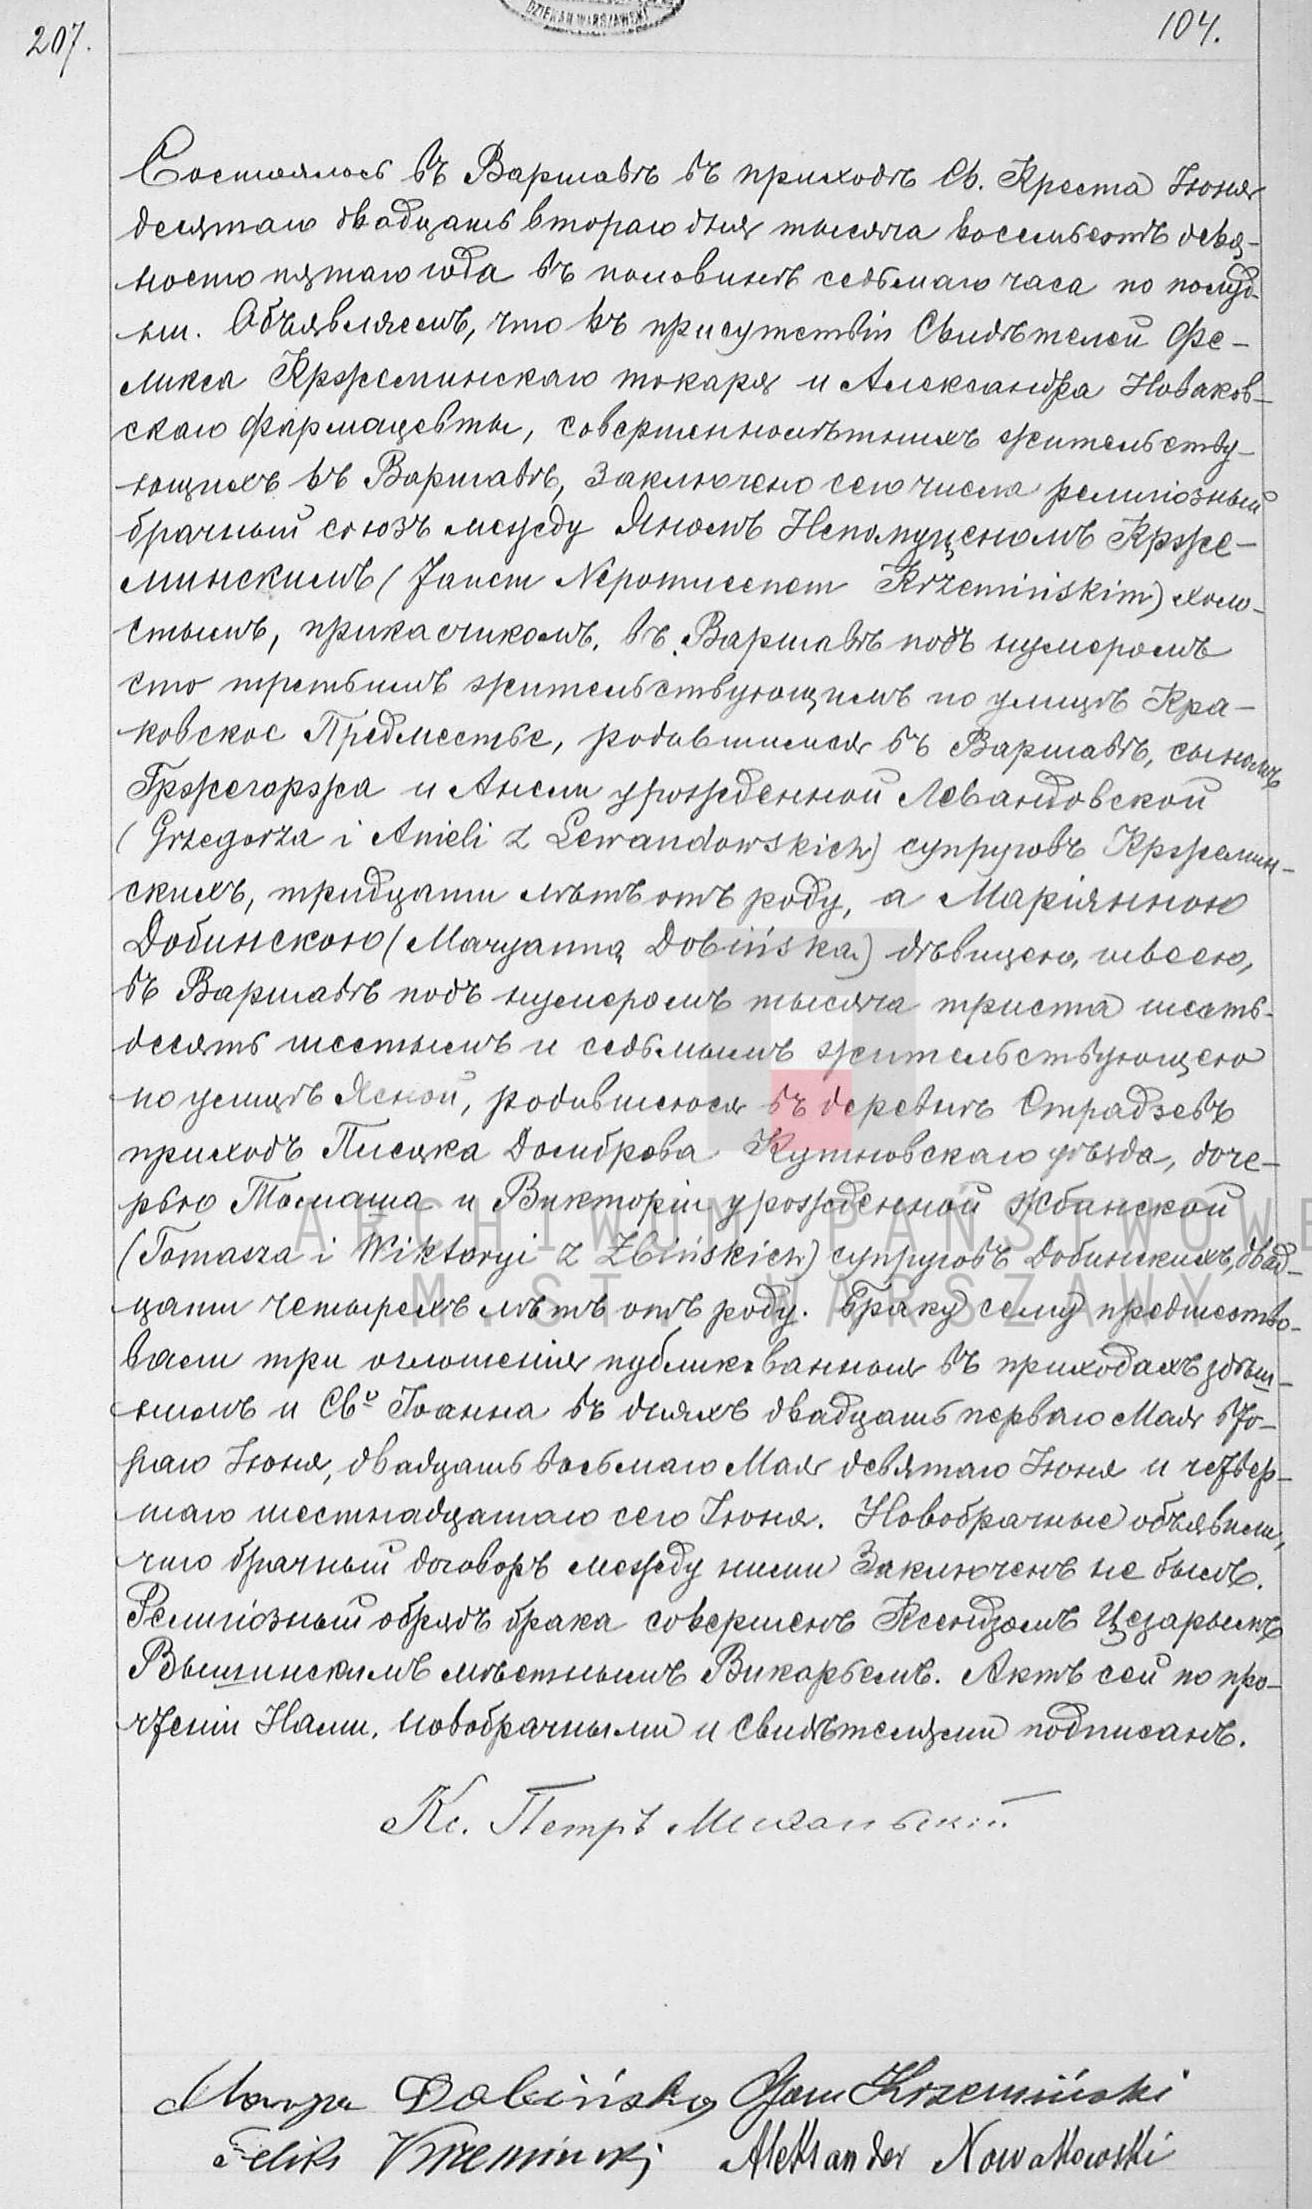 DZIEKAN WARSZAWSKI
207.
104.
Состоялось въ Варшавѣ въ приходѣ Св. Креста Іюня
десятаго двадцать втораго дня тысяча восемьсотъ девя-
носто пятаго года въ половинѣ седьмаго часа по полуд-
ни. Объявляемъ, что въ присутствіи Свидѣтелей Фе-
ликса Кржеминскаго токаря и Александра Новаков-
скаго фармацевты, совершеннолѣтнихъ жительству-
ющихъ въ Варшавѣ, заключено сего числа религіозный
брачный союзъ между Яномъ Непомуценомъ Крже-
минскимъ (Janem Nepomucenem Krzemińskim) холо-
стымъ, прикащикомъ, въ Варшавѣ подъ нумеромъ
сто третьимъ жительствующимъ по улицѣ Кра-
ковское Предместье, родившимся въ Варшавѣ, сыномъ
Гржегоржа и Анели урожденной Левандовской
(Grzegorza i Anieli z Lewandowskich) супруговъ Кржемин-
скихъ, тридцати лѣтъ отъ роду, а Маріянною
Добинскою (Maryanną Dobińska) дѣвицею, швеею,
въ Варшавѣ подъ нумеромъ тысяча триста шесть-
десять шестымъ и седьмымъ жительствующею
по улицѣ Ясной, родившеюся въ деревнѣ Страдзевъ
приходъ Плецка Домброва Кутновскаго уѣзда, доче-
рью Томаша и Викторіи урожденной Жбинской
(Tomasza i Wiktoryi z Żbińskich) супруговъ Добинскихъ, двад-
цати четырехъ лѣтъ отъ роду. Браку сему предшество-
вали три оглошенія публикованныя въ приходахъ здѣш-
нимъ и Св. Іоанна въ дняхъ двадцать перваго Мая вто-
раго Іюня, двадцать восьмаго Мая девятаго Іюня и четвер-
таго шестнадцатаго сего Іюня. Новобрачные объявили,
что брачный договоръ между ними заключенъ не былъ.
Религіозный обрядъ брака совершенъ Ксендзомъ Цезарымъ
Вышинскимъ мѣстнымъ Викарьемъ. Актъ сей по про-
чтеніи Нами, новобрачными и свидѣтелями подписанъ.
Кс. Петръ
Marya Dobińska Jan Krzemiński
Feliks Krzemiński Aleksander Nowakowski
ARCHIWUM PAŃSTWOWE
M.ST. WARSZAWY